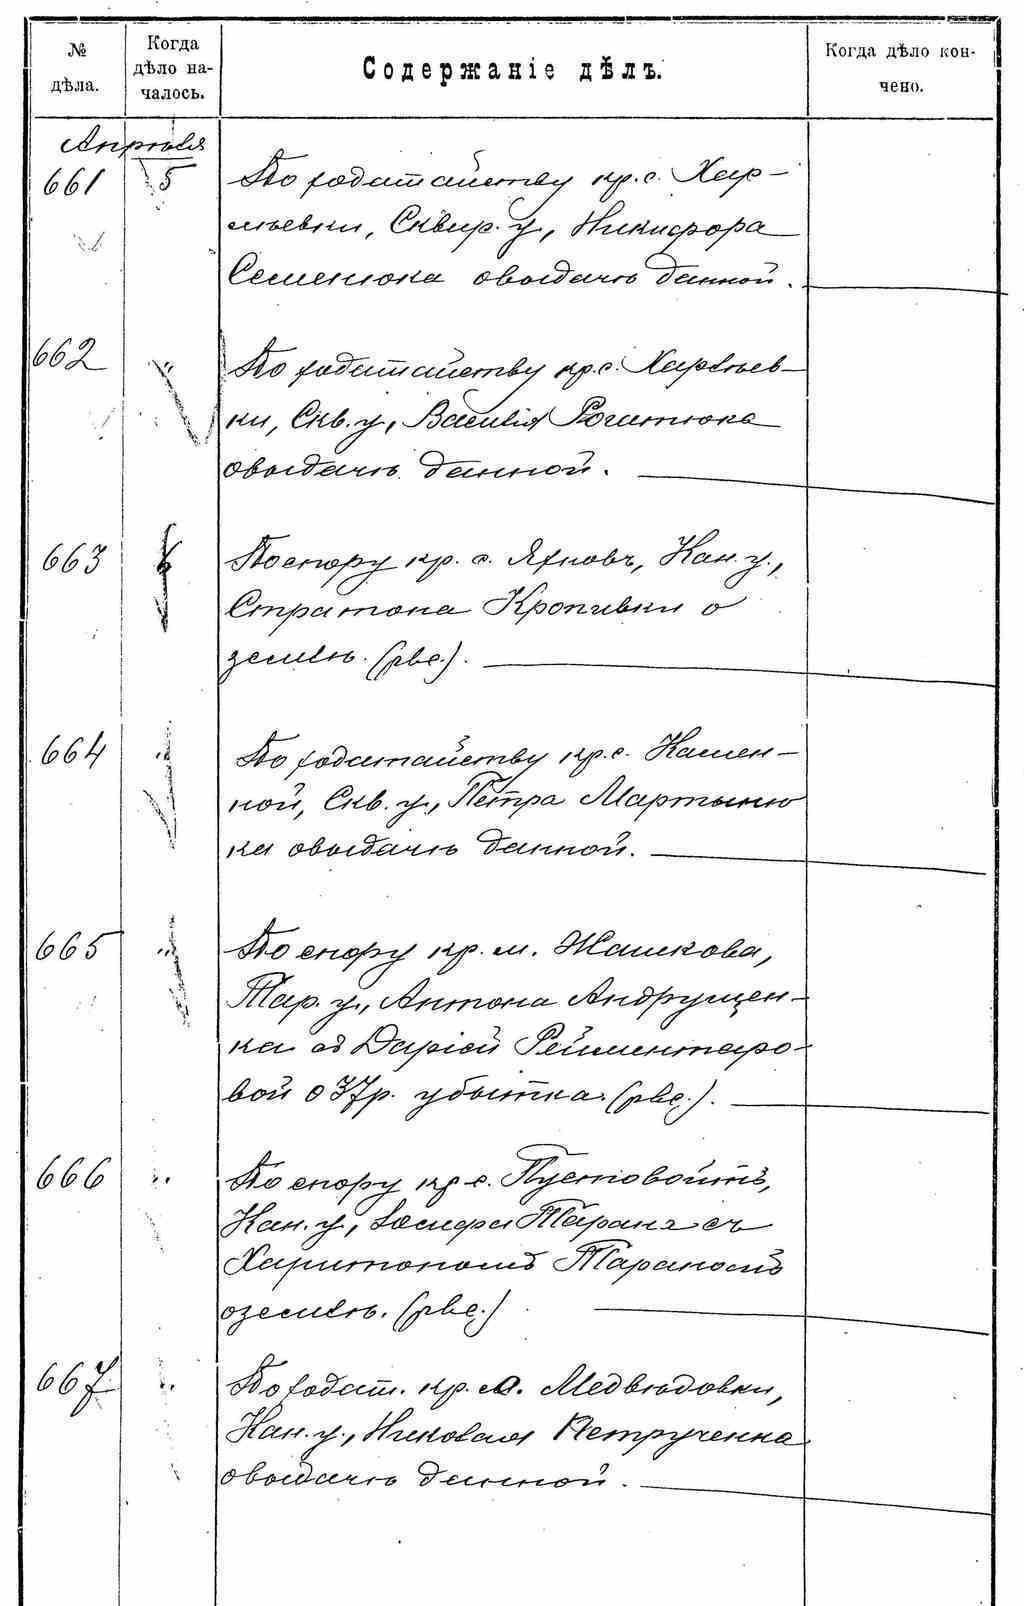 № дѣла.
Когда дѣло началось.
Содержаніе дѣлъ.
Когда дѣло кончено.
Апрѣля
661 5 По ходатайству кр. с. Хар-
лѣевки, Сквир. у, Никифора
Семенюка о выдачѣ данной.
662 " По ходатайству кр. с. Харлѣев-
ки, Скв. у, Василія Рогатюка
о выдачѣ данной.
663 6 По спору кр. с. Яхновъ, Кан. у.,
Стратона Кропивки о
землѣ. (рве.).
664 " По ходатайству кр. с. Камен-
ной, Скв. у., Петра Мартыню
ка о выдачѣ данной.
665 " По спору кр. м. Жашкова,
Тар. у., Антона Андрущен-
ка съ Даріей Рейментаро-
вой о 37 р. убытка. (рве.).
666 " По спору кр. с. Пустовойтъ,
Кан. у., Іосифа Тарана съ
Харитономъ Тараномъ
о землѣ. (рве.)
667 " По ходат. кр. м. Медвѣдовки,
Кан. у., Николая Петрученка
о выдачѣ данной.